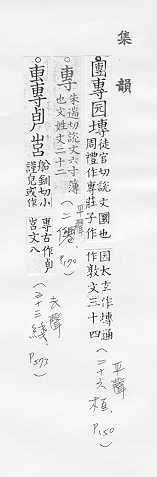 集韻
團專园塼徒官切說文圜也周禮作專莊子作园太玄作塼通作敦文三十四
平聲
(二十六桓, P.150
專朱遄切說文六寸薄也文姓文二十二
平聲
(二僊, P.170)
專古作叀
船釧切小謹皃或作
文八
去聲
(三十三綫, P.573)